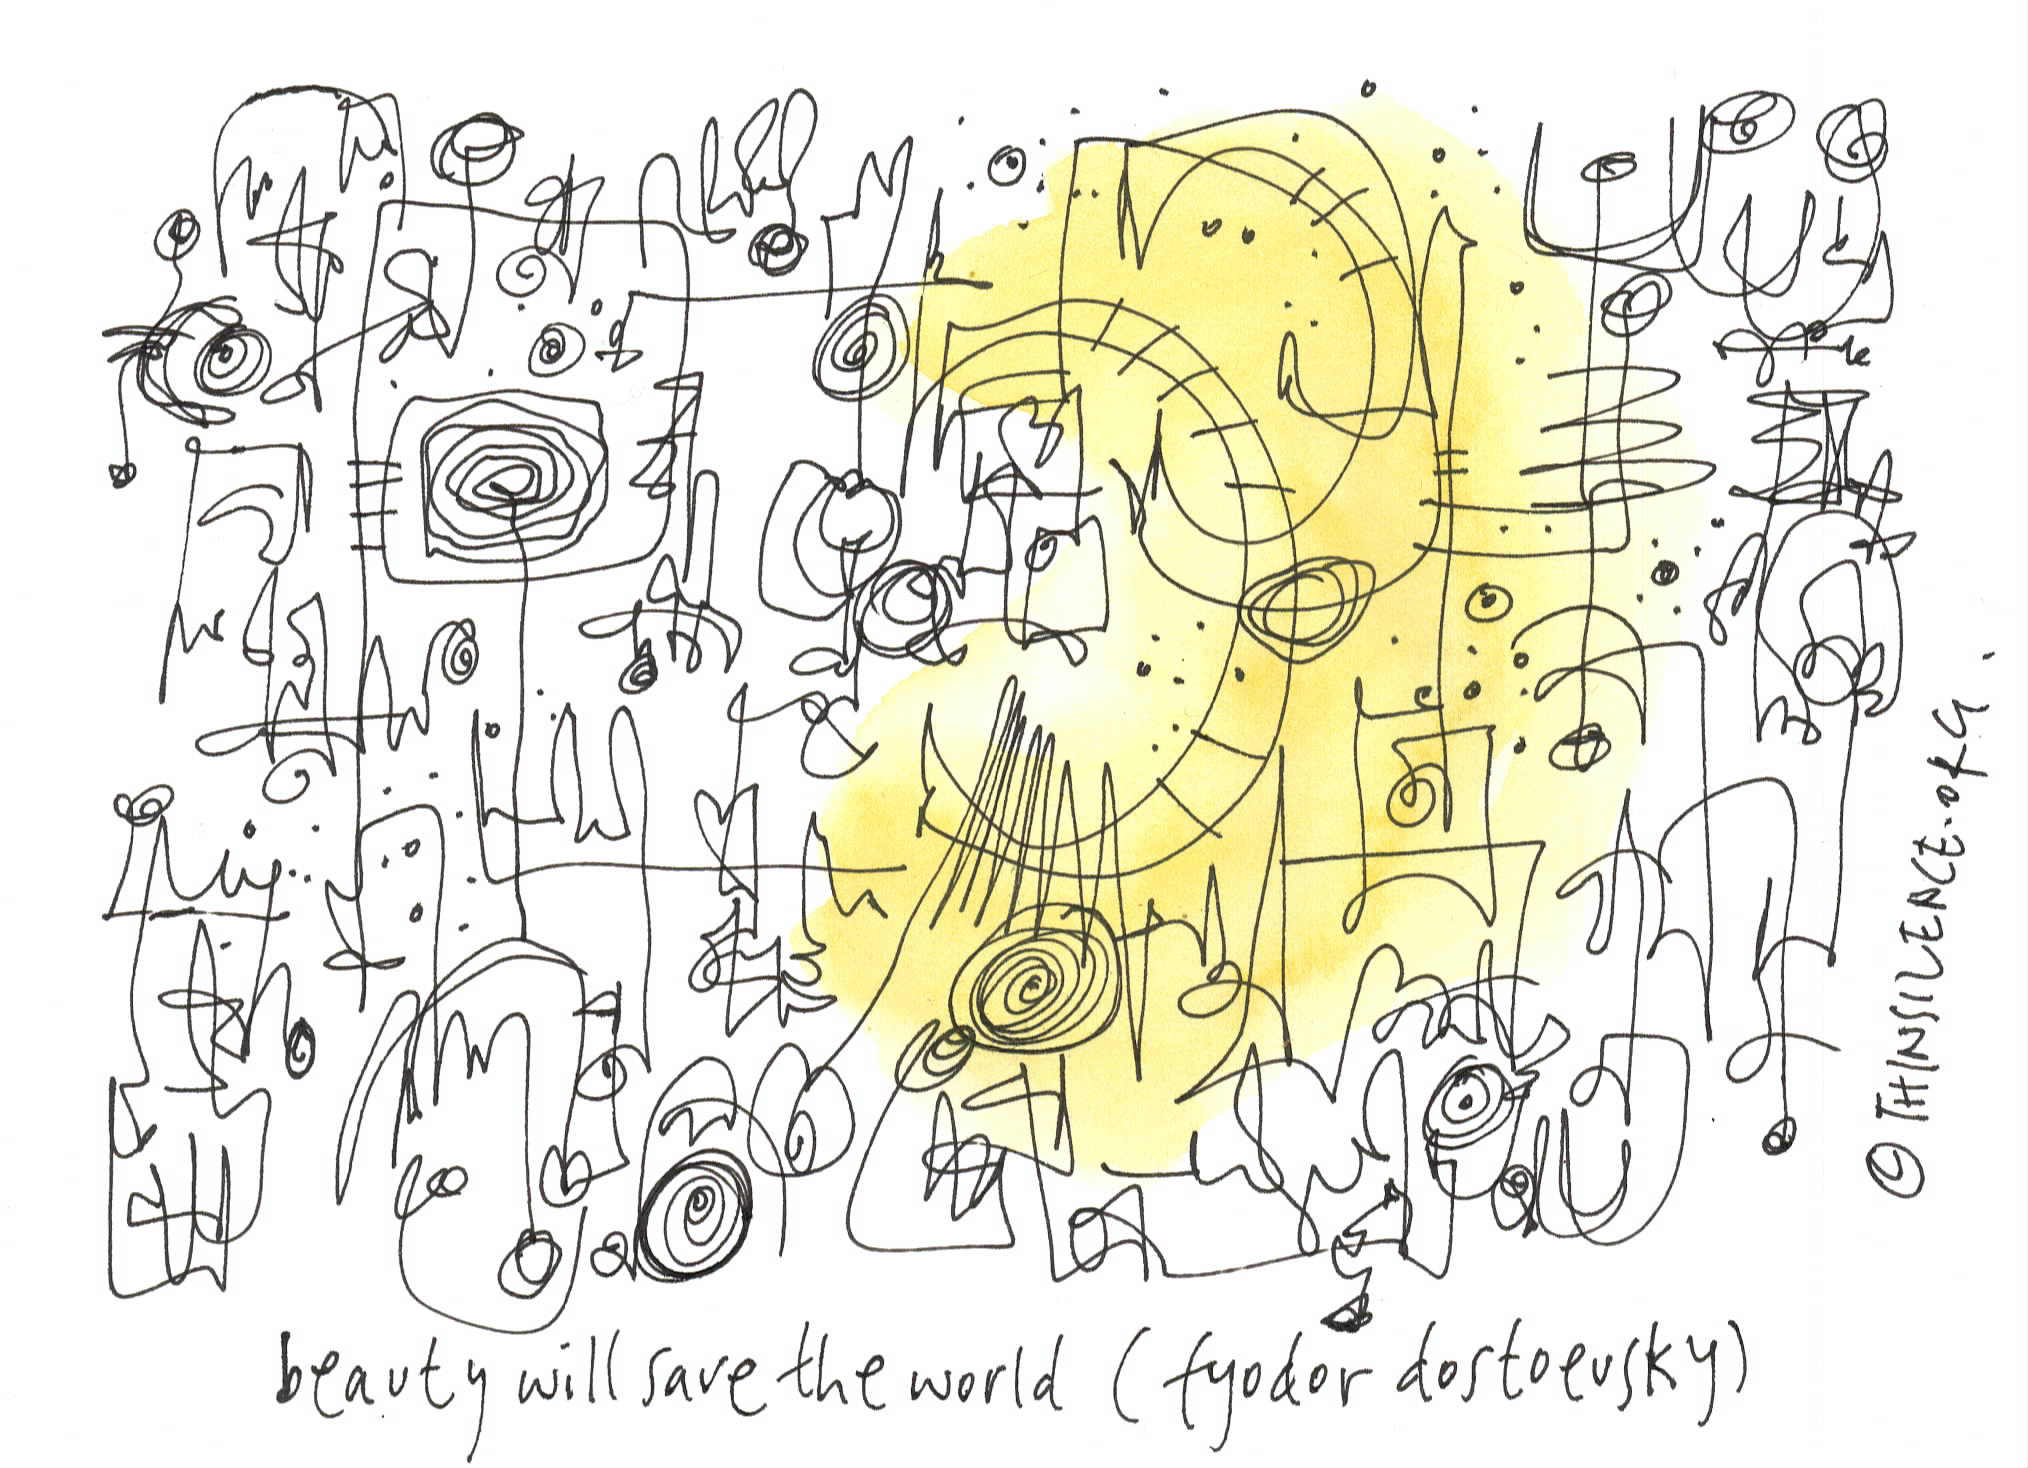 beauty will save the world (fyodor dostoevsky)
© THINSILENCE.ORG.